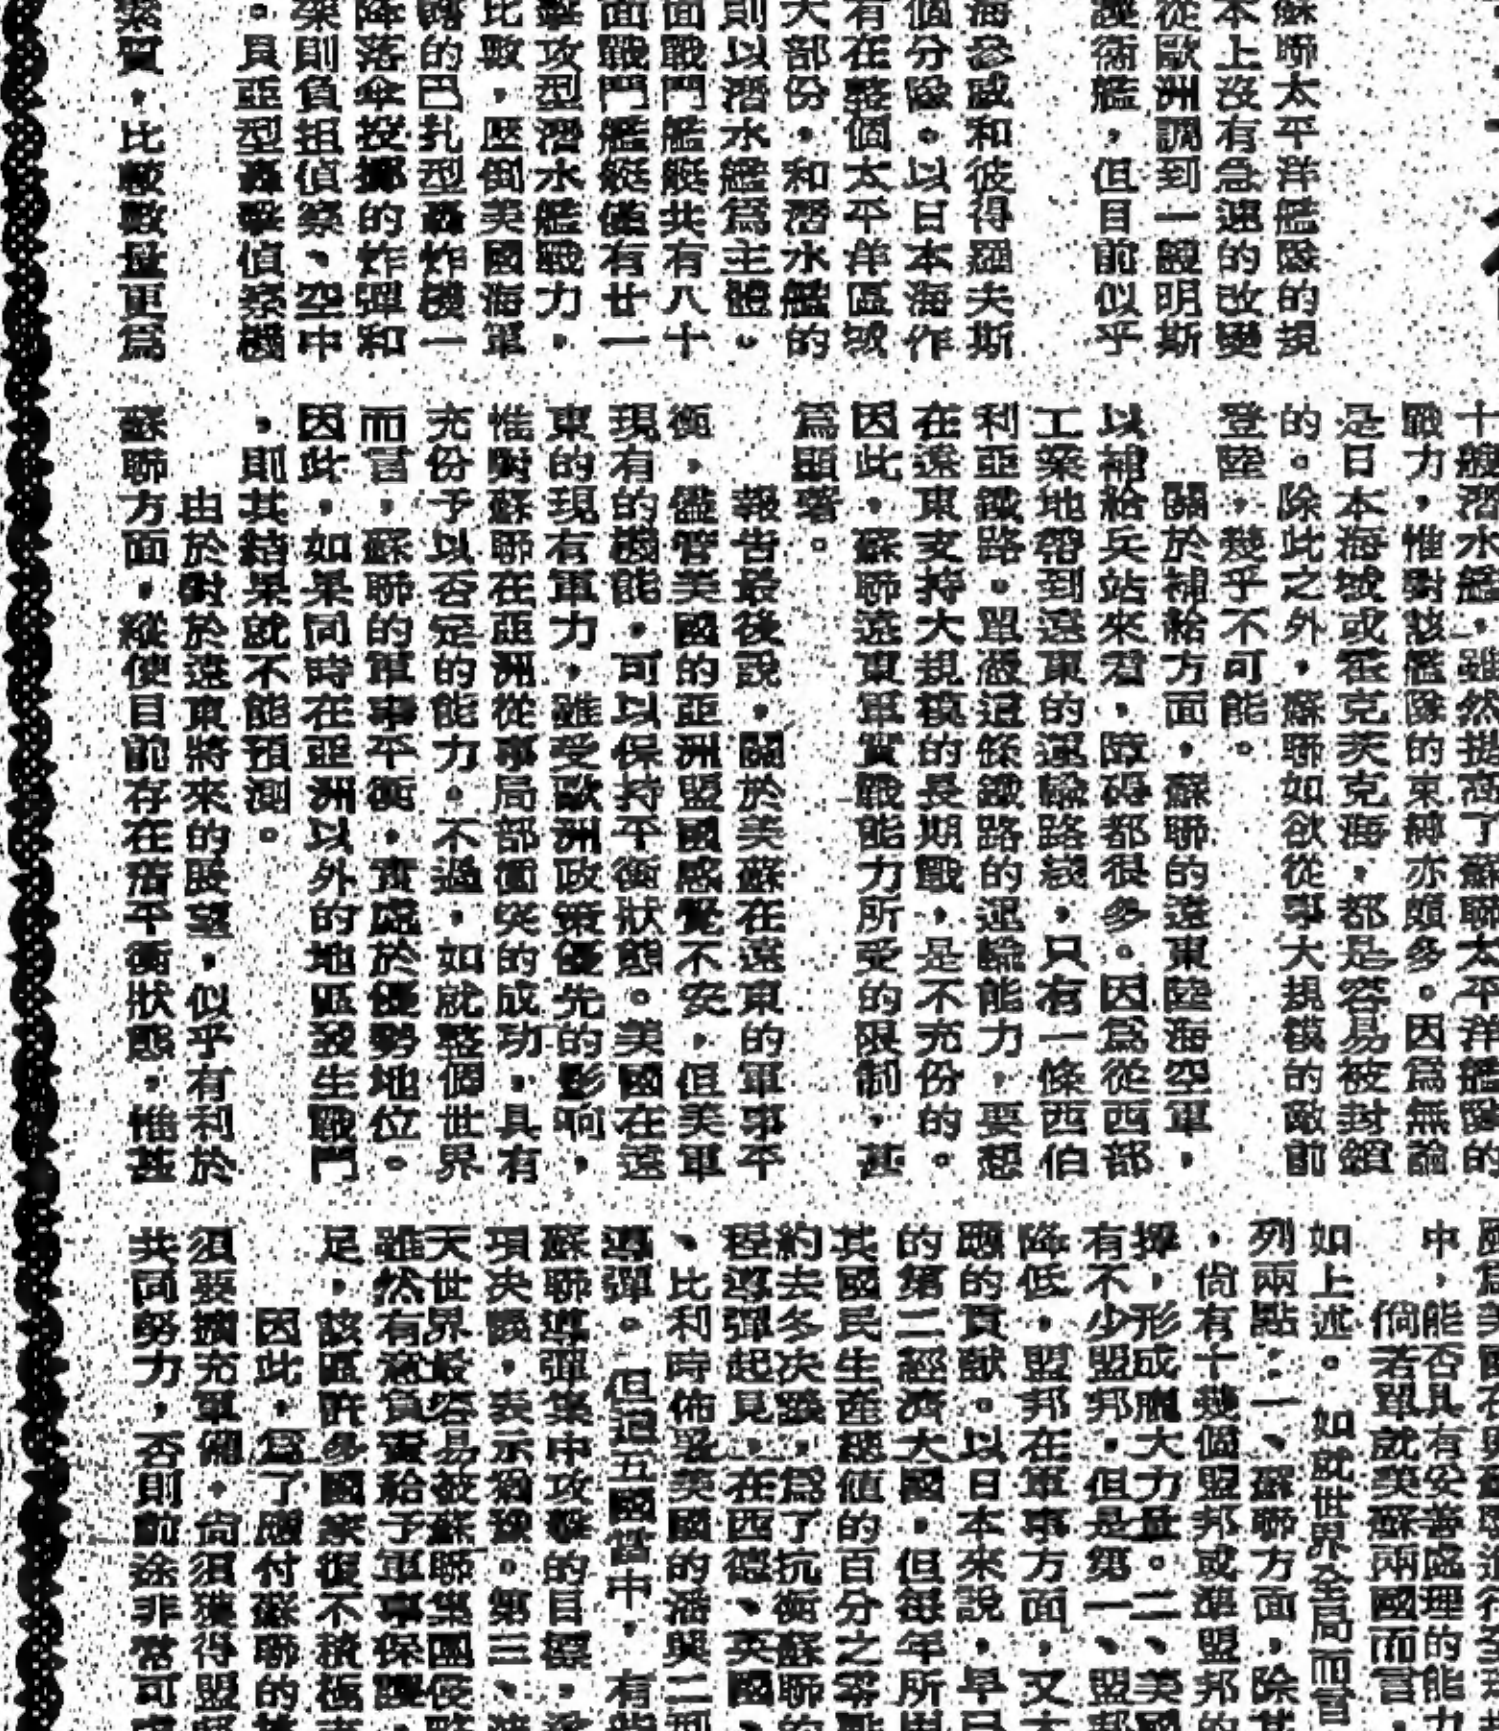 蘇聯太平洋艦隊的規
本上沒有急速的改變
從歐洲調到一艘明斯
護衛艦，但目前似乎
海參威和彼得羅夫斯
個分隊。以日本海作
有在整個太平洋區域
大部份，和潛水艦的
則以潛水艦爲主體。
面戰鬥艦艇共有八十
面戰鬥艦艇僅有廿一
擊攻型潛水艦戰力，
比數，壓倒美國海軍
的巴扎型轟炸機一
降落傘投擲的炸彈和
架則負担偵察、空中
。貝亞型轟擊偵察機
繁質，比較數量更爲
十艘潛水艦，雖然提高了蘇聯太平洋艦隊的
戰力，惟對該艦隊的束縛亦頗多。因爲無論
是日本海域或霍克芙克海，都是容易被封鎖
的。除此之外，蘇聯如欲從事大規模的敵前
登陸，幾乎不可能。
關於補給方面，蘇聯的遠東陸海空軍，
以補給兵站來看，障碍都很多。因爲從西部
工業地帶到遠東的運輸路綫，只有一條西伯
利亞鐵路。單憑這條鐵路的運輸能力，要想
在遠東支持大規模的長期戰，是不充份的。
因此，蘇聯遠東軍實戰能力所受的限制，甚
爲顯著。
報告最後說，關於美蘇在遠東的軍事平
衡，儘管美國的亞洲盟國感覺不安，但美軍
現有的機能，可以保持平衡狀態。美國在遠
東的現有軍力，雖受歐洲政策優先的影响，
惟對蘇聯在亞洲從事局部衝突的成功，具有
充份予以否定的能力。不過，如就整個世界
而言，蘇聯的軍事平衡，實處於優勢地位。
因此，如果同時在亞洲以外的地區發生戰鬥
，則其結果就不能預測。
由於對於遠東將來的展望，似乎有利於
蘇聯方面，縱使目前存在着平衡狀態，惟甚
中，能否具有妥善處理的能力
倘若單就美蘇兩國而言
如上述。如就世界全局而言
列兩點：一、蘇聯方面，除
，尙有十幾個盟邦或準盟邦的
揮，形成龐大力量。二、美國
有不少盟邦，但是第一、盟邦
降低，盟邦在軍事方面，又
應的貢獻。以日本來說，早已
的第二經濟大國，但每年所
其國民生產總值的百分之零點
約去冬決議，爲了抗衡蘇聯的
程導彈起見，在西德、英國
、比利時佈署美國的潘興二
導彈。但這五國當中，有
蘇聯導彈集中攻擊的目標，
項決議，表示猶豫。第三、
天世界最容易被蘇聯集團侵
雖然有意負責給予軍事保護
足，該區許多國家復不積極
因此，爲了應付蘇聯的
須要擴充軍備，尙須獲得盟
共同努力，否則前途非常可